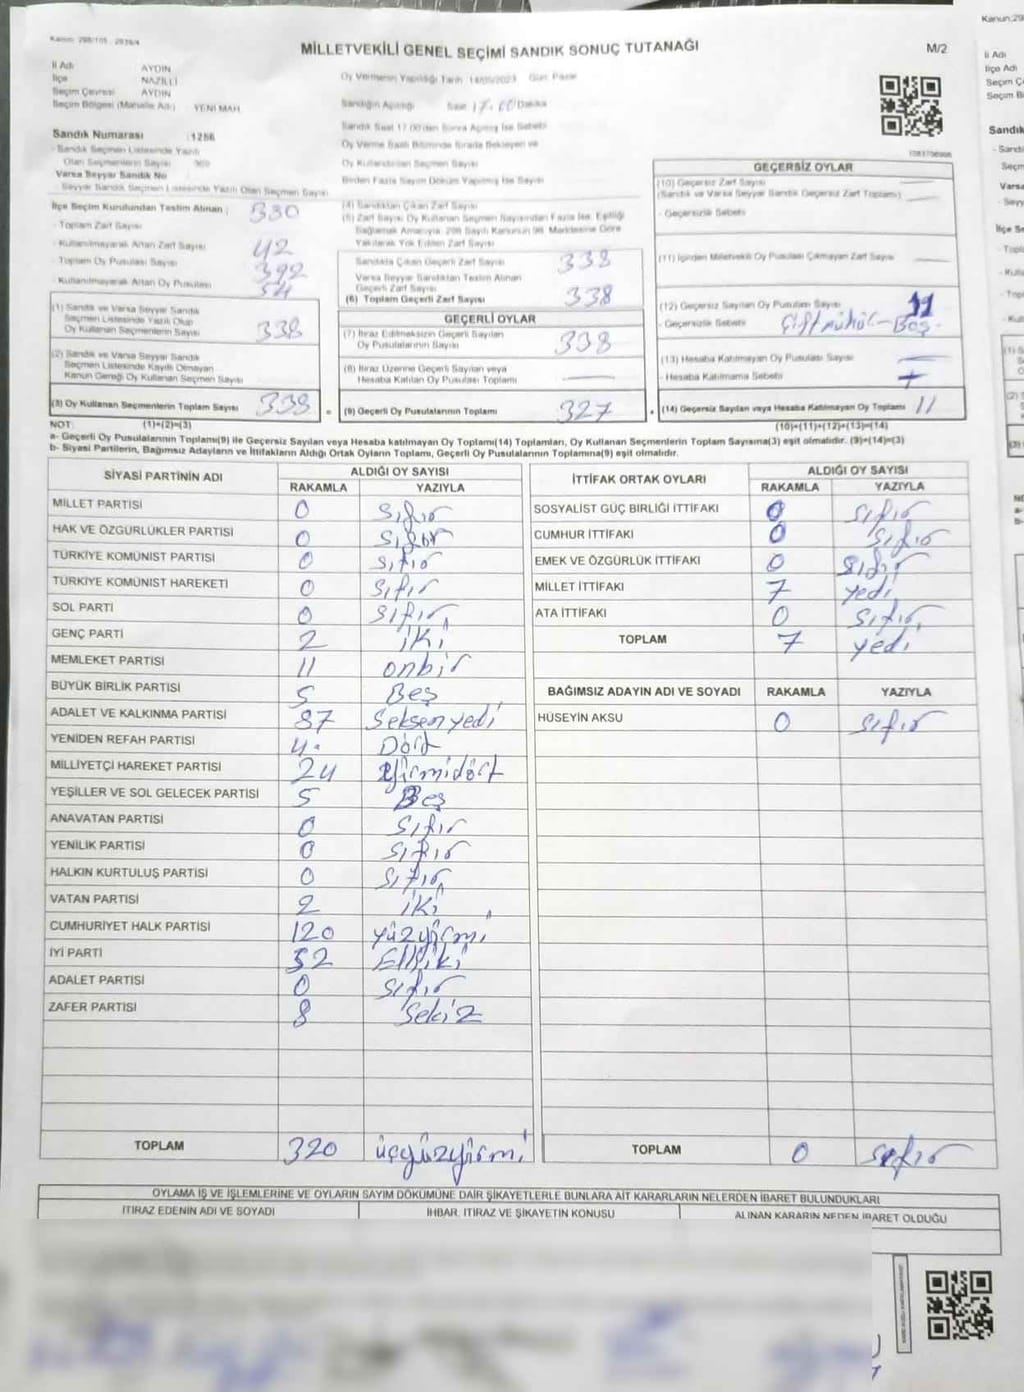 Kanun: 298/105 : 2839/4
MİLLETVEKİLİ GENEL SEÇİMİ SANDIK SONUÇ TUTANAĞI
M/2
İl Adı AYDIN
İlçe NAZİLLİ
Seçim Çevresi AYDIN
Seçim Bölgesi (Mahalle Adı) YENİ MAH.
Oy Vermenin Yapıldığı Tarih : 14/05/2023 Gün: Pazar
Sandığın Açıldığı Saat 17.00 Dakika
Sandık Saat 17.00'den Sonra Açılmış İse Sebebi
Oy Verme Saati Bitiminde Sırada Bekleyen ve
Oy Kullandırılan Seçmen Sayısı
Birden Fazla Sayım Döküm Yapılmış İse Sayısı
Sandık Numarası : 1286
- Sandık Seçmen Listesinde Yazılı
Olan Seçmenlerin Sayısı
Varsa Seyyar Sandık No
- Seyyar Sandık Seçmen Listesinde Yazılı Olan Seçmen Sayısı
İlçe Seçim Kurulundan Teslim Alınan : 380
- Toplam Zarf Sayısı
- Kullanılmayarak Artan Zarf Sayısı 42
- Toplam Oy Pusulası Sayısı 392
- Kullanılmayarak Artan Oy Pusulası 54
(1) Sandık ve Varsa Seyyar Sandık
Seçmen Listesinde Yazılı Olup
Oy Kullanan Seçmenlerin Sayısı 338
(2) Sandık ve Varsa Seyyar Sandık
Seçmen Listesinde Kayıtlı Olmayan
Kanun Gereği Oy Kullanan Seçmen Sayısı
(3) Oy Kullanan Seçmenlerin Toplam Sayısı 338
(4) Sandıktan Çıkan Zarf Sayısı
(5) Zarf Sayısı Oy Kullanan Seçmen Sayısından Fazla İse, Eşitliği
Sağlamak Amacıyla, 298 Sayılı Kanunun 98. Maddesine Göre
Yakılarak Yok Edilen Zarf Sayısı
Sandıkta Çıkan Geçerli Zarf Sayısı 338
Varsa Seyyar Sandıktan Teslim Alınan
Geçerli Zarf Sayısı
(6) Toplam Geçerli Zarf Sayısı 338
GEÇERLİ OYLAR
(7) İtiraz Edilmeksizin Geçerli Sayılan
Oy Pusulalarının Sayısı 338
(8) İtiraz Üzerine Geçerli Sayılan veya
Hesaba Katılan Oy Pusulası Toplamı
(9) Geçerli Oy Pusulalarının Toplamı 327
GEÇERSİZ OYLAR
(10) Geçersiz Zarf Sayısı
(Sandık ve Varsa Seyyar Sandık Geçersiz Zarf Toplamı)
- Geçersizlik Sebebi
(11) İçinden Milletvekili Oy Pusulası Çıkmayan Zarf Sayısı
(12) Geçersiz Sayılan Oy Pusulası Sayısı 11
- Geçersizlik Sebebi Çift mühür - Boş
(13) Hesaba Katılmayan Oy Pusulası Sayısı
- Hesaba Katılmama Sebebi
(14) Geçersiz Sayılan veya Hesaba Katılmayan Oy Toplamı 11
NOT: (1)+(2)=(3) (10)+(11)+(12)+(13)=(14)
a- Geçerli Oy Pusulalarının Toplamı(9) ile Geçersiz Sayılan veya Hesaba katılmayan Oy Toplamı(14) Toplamları, Oy Kullanan Seçmenlerin Toplam Sayısına(3) eşit olmalıdır. (9)+(14)=(3)
b- Siyasi Partilerin, Bağımsız Adayların ve İttifakların Aldığı Ortak Oyların Toplamı, Geçerli Oy Pusulalarının Toplamına(9) eşit olmalıdır.
SİYASİ PARTİNİN ADI ALDIĞI OY SAYISI
RAKAMLA YAZIYLA
MİLLET PARTİSİ 0 sıfır
HAK VE ÖZGÜRLÜKLER PARTİSİ 0 sıfır
TÜRKİYE KOMÜNİST PARTİSİ 0 sıfır
TÜRKİYE KOMÜNİST HAREKETİ 0 sıfır
SOL PARTİ 0 sıfır
GENÇ PARTİ 2 iki
MEMLEKET PARTİSİ 11 onbir
BÜYÜK BİRLİK PARTİSİ 5 Beş
ADALET VE KALKINMA PARTİSİ 87 Seksenyedi
YENİDEN REFAH PARTİSİ 4 Dört
MİLLİYETÇİ HAREKET PARTİSİ 24 Yirmidört
YEŞİLLER VE SOL GELECEK PARTİSİ 5 Beş
ANAVATAN PARTİSİ 0 sıfır
YENİLİK PARTİSİ 0 sıfır
HALKIN KURTULUŞ PARTİSİ 0 sıfır
VATAN PARTİSİ 2 iki
CUMHURİYET HALK PARTİSİ 120 yüzyirmi
İYİ PARTİ 52 Elliiki
ADALET PARTİSİ 0 sıfır
ZAFER PARTİSİ 8 Sekiz
TOPLAM 320 üçyüzyirmi
İTTİFAK ORTAK OYLARI ALDIĞI OY SAYISI
RAKAMLA YAZIYLA
SOSYALİST GÜÇ BİRLİĞİ İTTİFAKI 0 sıfır
CUMHUR İTTİFAKI 0 sıfır
EMEK VE ÖZGÜRLÜK İTTİFAKI 0 sıfır
MİLLET İTTİFAKI 7 yedi
ATA İTTİFAKI 0 sıfır
TOPLAM 7 yedi
BAĞIMSIZ ADAYIN ADI VE SOYADI RAKAMLA YAZIYLA
HÜSEYİN AKSU 0 sıfır
TOPLAM 0 sıfır
OYLAMA İŞ VE İŞLEMLERİNE VE OYLARIN SAYIM DÖKÜMÜNE DAİR ŞİKAYETLERLE BUNLARA AİT KARARLARIN NELERDEN İBARET BULUNDUKLARI
İTİRAZ EDENİN ADI VE SOYADI İHBAR, İTİRAZ VE ŞİKAYETİN KONUSU ALINAN KARARIN NEDEN İBARET OLDUĞU